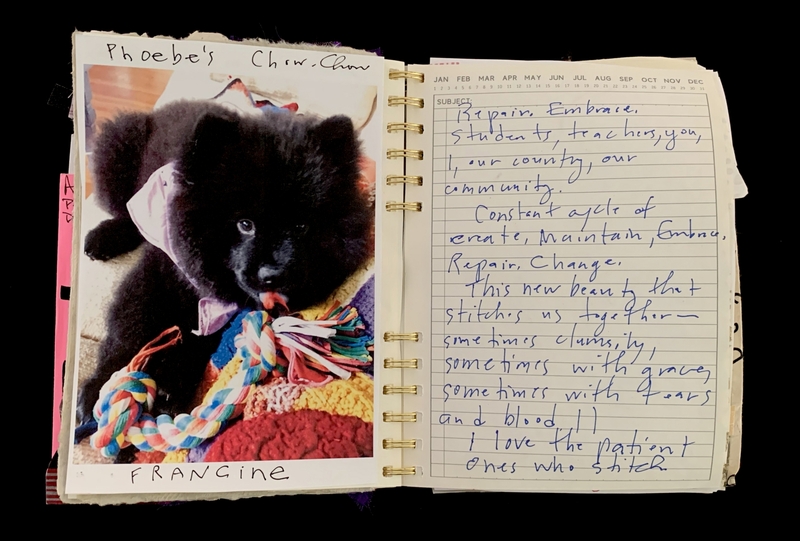 Phoebe's Chow-Chow
FRANGine
APD
JAN FEB MAR APR MAY JUN JUL AUG SEP OCT NOV DEC
1 2 3 4 5 6 7 8 9 10 11 12 13 14 15 16 17 18 19 20 21 22 23 24 25 26 27 28 29 30 31
SUBJECT:
Repair. Embrace.
students, teachers, you,
I, our country, our
community.
Constant cycle of
create, Maintain, Embrace,
Repair. Change.
This new beauty that
stitches us together—
sometimes clumsily,
sometimes with grace,
sometimes with tears
and blood.
I love the patient
ones who stitch